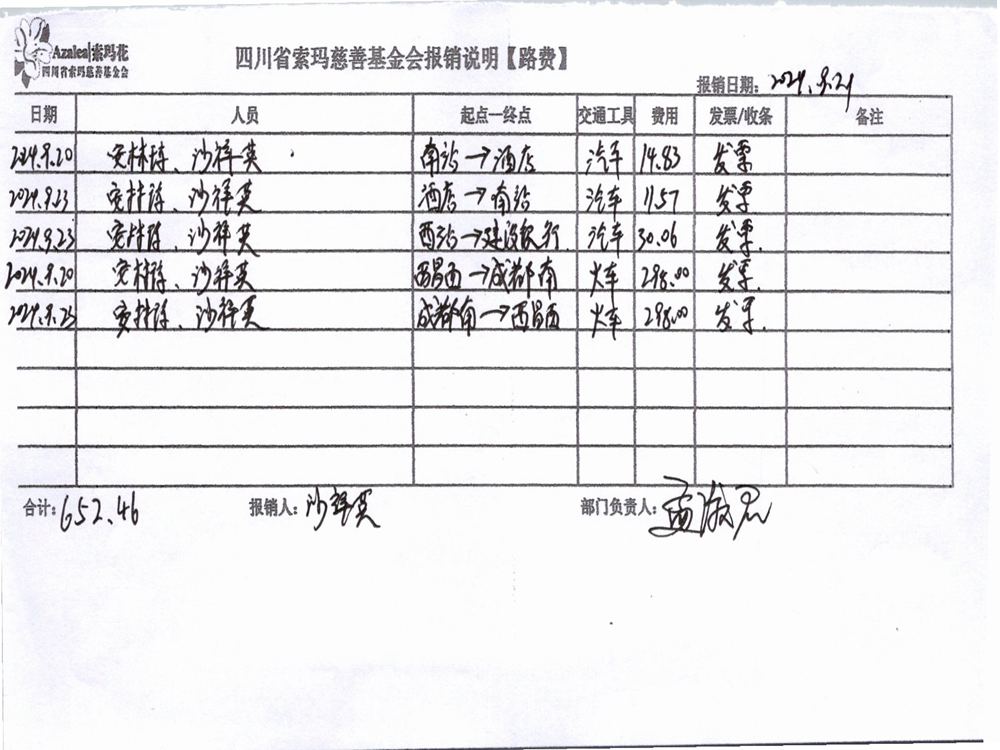 Azalea|索玛花
四川省索玛慈善基金会
四川省索玛慈善基金会报销说明【路费】
报销日期: 2024.9.29
日期 人员 起点—终点 交通工具 费用 发票/收条 备注
2024.9.20 沙祥英 南站→酒店 汽车 14.83 发票
2024.9.23 沙祥英 酒店→南站 汽车 11.57 发票
2024.9.23 沙祥英 西站→建设银行 汽车 30.06 发票
2024.9.20 沙祥英 西昌西→成都南 火车 298.00 发票
2024.9.23 沙祥英 成都南→西昌西 火车 298.00 发票
合计: 652.46 报销人: 沙祥英 部门负责人: